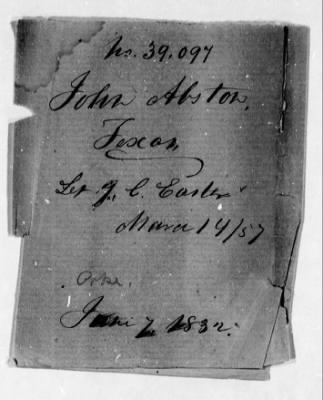 No. 39,097
John Abston,
Texas
Let J. C. Easter
March 14/57
June 7 1832.